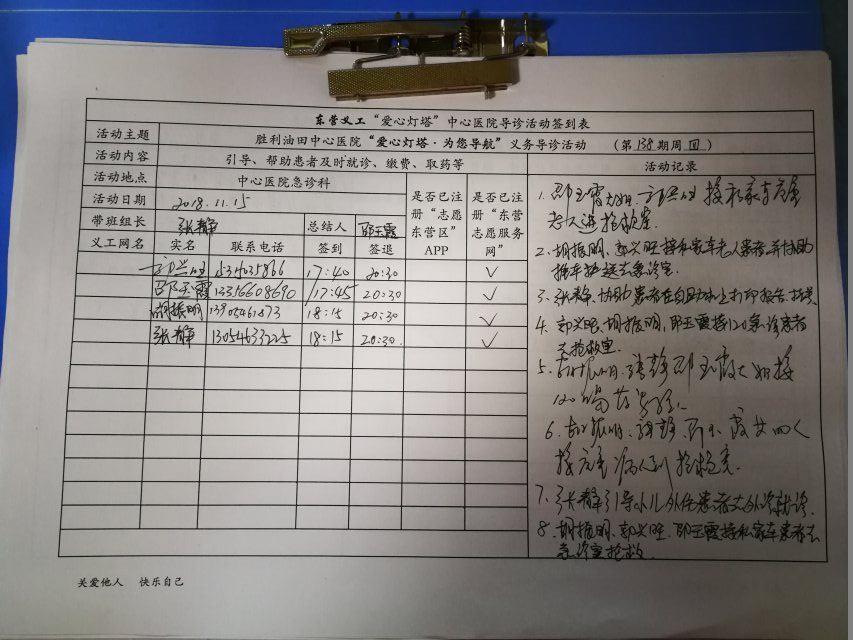 东营义工“爱心灯塔”中心医院导诊活动签到表
活动主题 胜利油田中心医院“爱心灯塔·为您导航”义务导诊活动 (第138期周四)
活动内容 引导、帮助患者及时就诊、缴费、取药等 活动记录
活动地点 中心医院急诊科
是否已注册“志愿东营区”APP
是否已注册“东营志愿服务网”
活动日期 2018.11.15
带班组长 张静 总结人 邵玉霞
义工网名 实名 联系电话 签到 签退
17:40 20:30 ✓
邵玉霞 13356608690 17:45 20:30 ✓
胡振明 13905461873 18:15 20:30 ✓
张静 13054633225 18:15 20:30 ✓
1. 邵玉霞大姐、接私家车危重
老人进抢救室.
2. 胡振明、郭兴旺接私家车老人患者,并协助
推车护送去急诊室.
3. 张静协助患者在自助机上打印报告、
4. 郭兴旺、胡振明、邵玉霞接120急诊患者
去抢救室.
5. 胡振明、张静、邵玉霞大姐接
120
6. 胡振明、张静、邵玉霞
接危重病人到抢救室.
7. 张静引导小儿外伤患者去外诊就诊.
8. 胡振明、郭兴旺、邵玉霞接私家车患者去
急诊室抢救
关爱他人 快乐自己